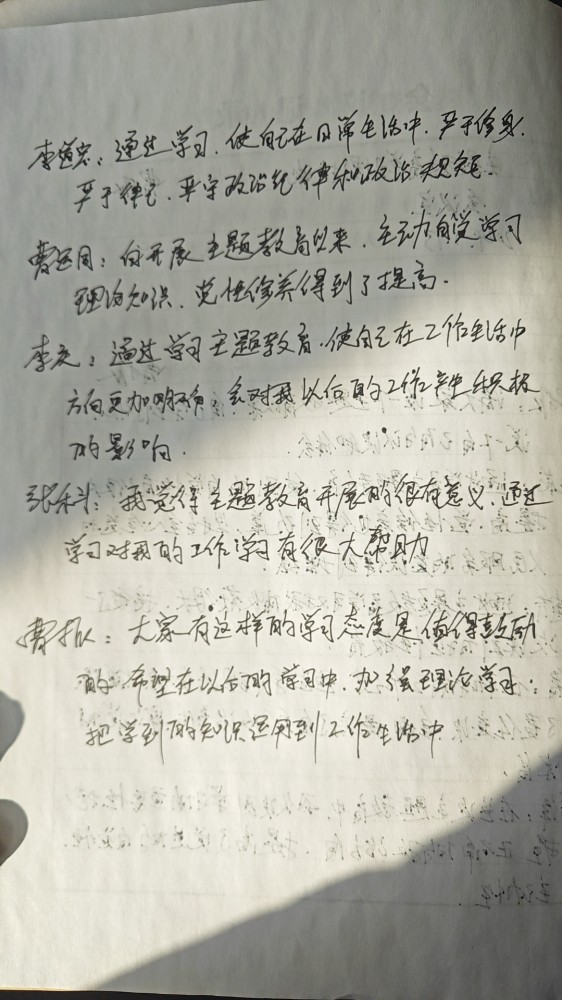 李道宏：通过学习，使自己在日常生活中，严于修身，
严于律己，严守政治纪律和政治规矩。
曹运同：自开展主题教育以来，主动自觉学习
理论知识，党性修养得到了提高。
李文：通过学习主题教育，使自己在工作生活中
方向更加明确，会对我以后的工作产生积极
的影响。
张科：我觉得主题教育开展的很有意义，通过
学习对我的工作学习有很大帮助
曹排：大家有这样的学习态度是值得鼓励
的，希望在以后的学习中，加强理论学习；
把学到的知识运用到工作生活中